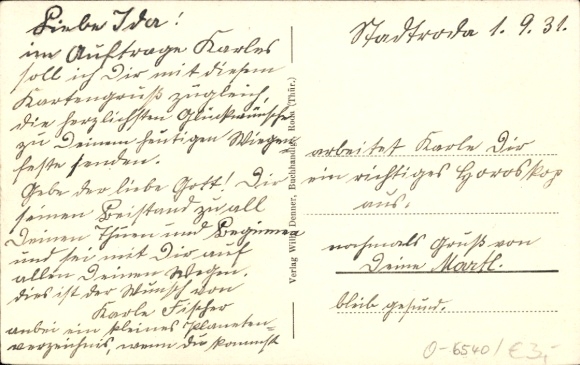 Liebe Ida!
im Auftrage Karles
soll ich Dir mit diesem
Kartengruß zugleich,
die herzlichsten Glückwünsche
zu Deinem heutigen Wiegen
feste senden.
Gebe der liebe Gott! Dir
seinen Beistand zu all
Deinen Thuen und Beginnen
und sei mit Dir auf
allen Deinen Wegen.
dies ist der Wunsch von
Karle Fischer
anbei ein kleines Planeten-
verzeichnis, wenn du kommst
Verlag Wilh. Denner, Buchhandlg., Roda (Thür.)
Stadtroda 1. 9. 31.
arbeitet Karle Dir
ein richtiges Horoskop
aus.
nochmals Gruß von
Deine Martl.
bleib gesund.
0-6540/ €3,-